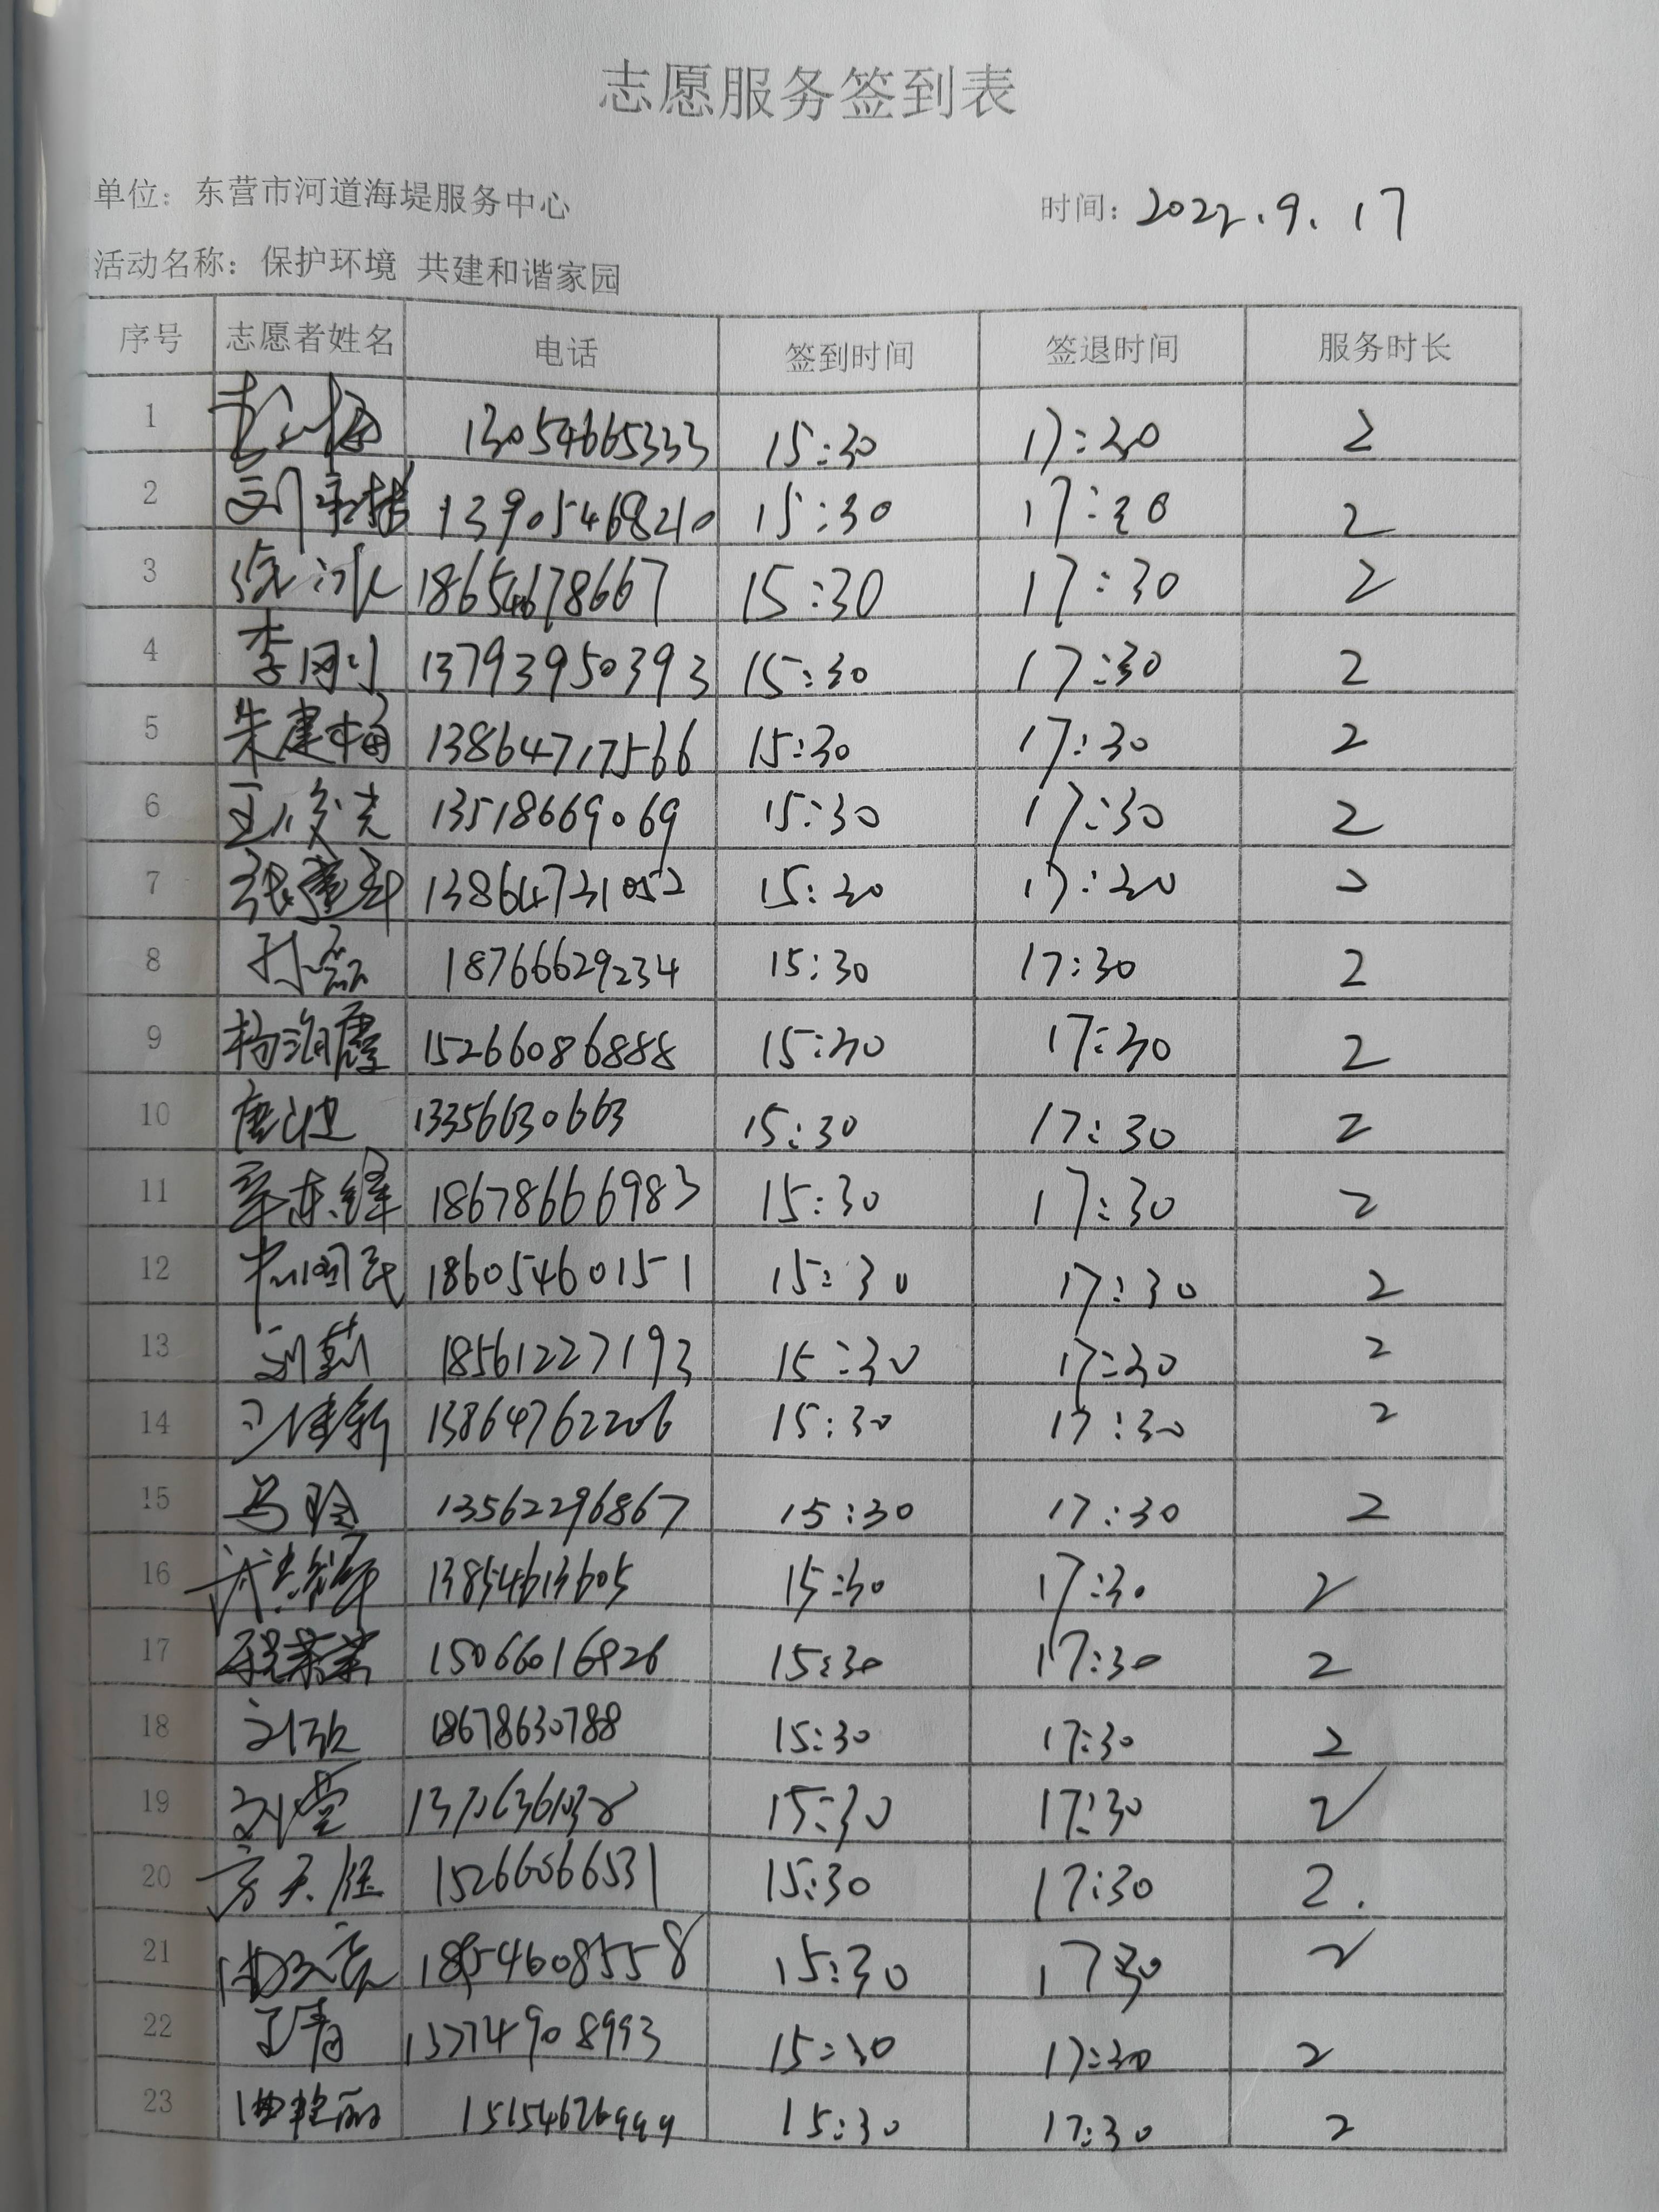 志愿服务签到表
单位：东营市河道海堤服务中心 时间：2022.9.17
活动名称：保护环境 共建和谐家园
序号 志愿者姓名 电话 签到时间 签退时间 服务时长
1 13054665333 15:30 17:30 2
2 13905468210 15:30 17:30 2
3 18654678667 15:30 17:30 2
4 李刚 13793950393 15:30 17:30 2
5 朱建梅 13864717566 15:30 17:30 2
6 王俊光 13518669069 15:30 17:30 2
7 13864731052 15:30 17:30 2
8 孙磊 18766629234 15:30 17:30 2
9 杨海霞 15266086888 15:30 17:30 2
10 13356630663 15:30 17:30 2
11 辛东绎 18678666983 15:30 17:30 2
12 18605460151 15:30 17:30 2
13 刘莉 18561227193 15:30 17:30 2
14 13864762206 15:30 17:30 2
15 马玲 13562296867 15:30 17:30 2
16 13854613605 15:30 17:30 2
17 15066016826 15:30 17:30 2
18 刘欣 18678630788 15:30 17:30 2
19 刘莹 15:30 17:30 2
20 15266066531 15:30 17:30 2.
21 18954608558 15:30 17:30 2
22 王青 15:30 17:30 2
23 曲艳丽 15154626999 15:30 17:30 2